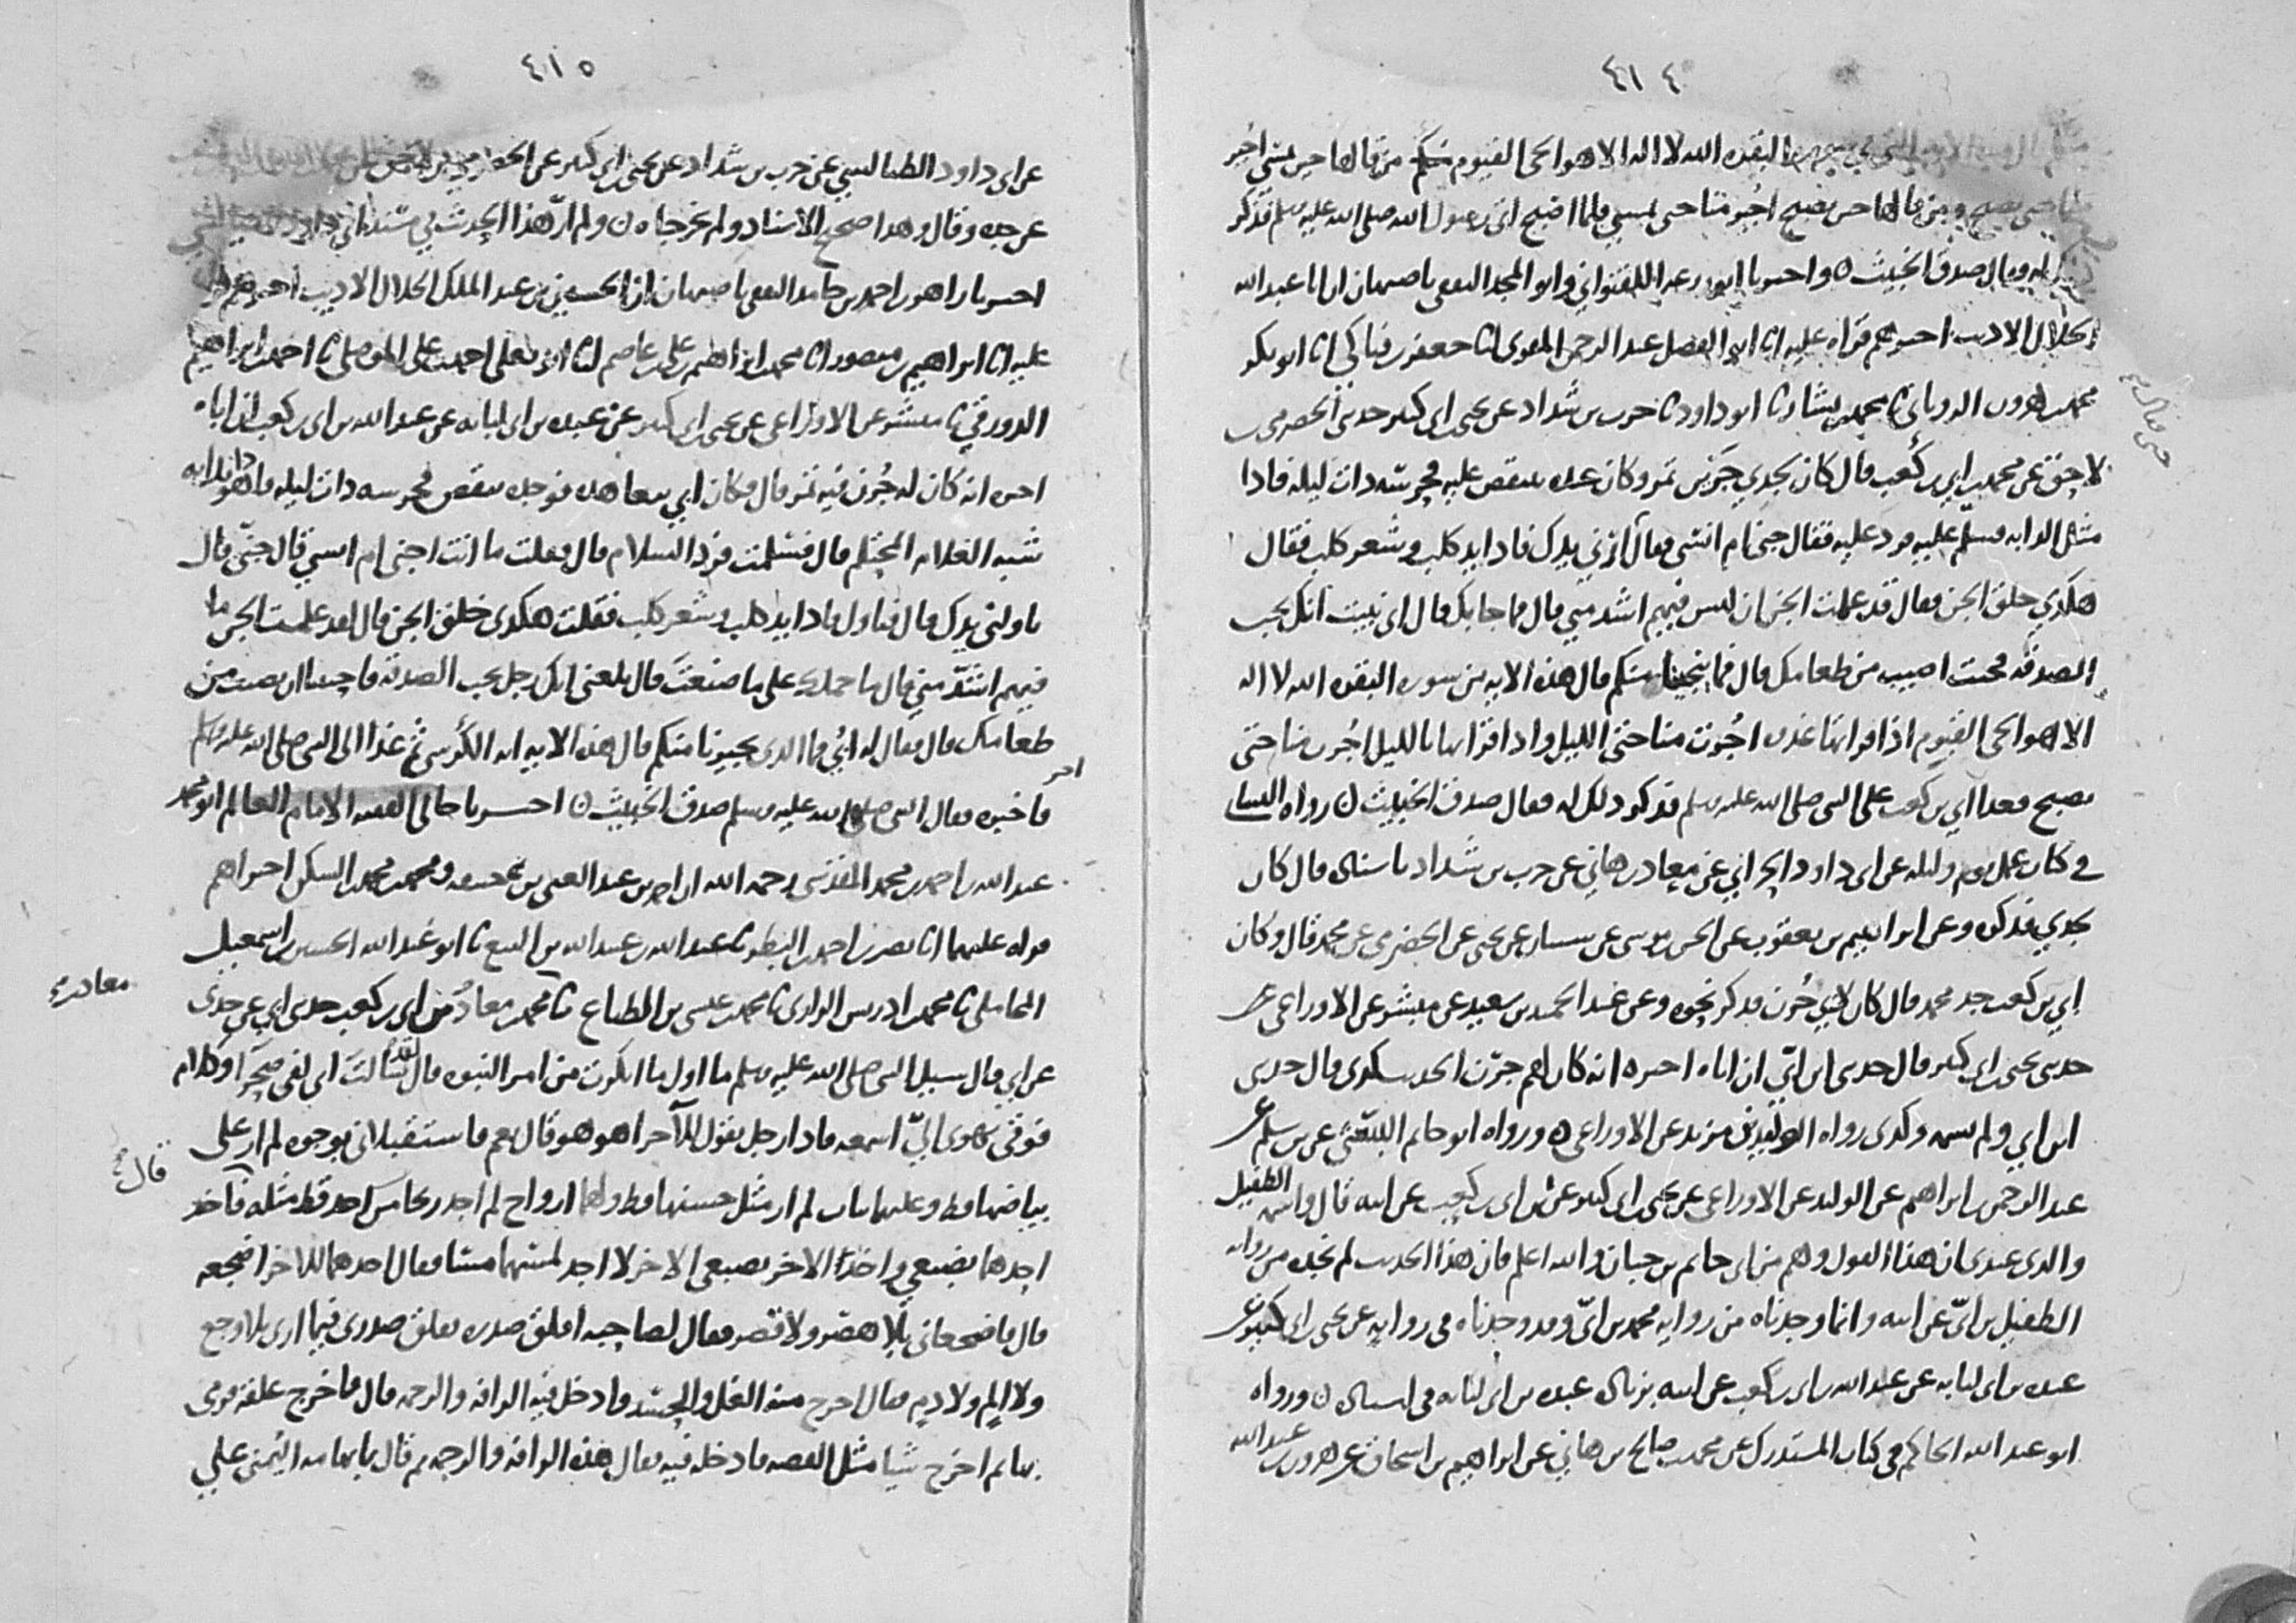 ٤١٤
البقره الله لا اله الا هو الحي القيوم من قالها حين يمسي اجير
منا حتى يصبح ومن قالها حين يصبح اجير منا حتى يمسي فلما اصبح اتى رسول الله صلى الله عليه وسلم فذكر
له فقال صدق الخبيث ٥ واخبرنا وابو المجد الثقفي باصبهان ان ابا عبد الله
الخلال الاديب اخبرهم قراه عليه انا ابو الفضل عبد الرحمن المقري انا جعفر بن فناكي انا ابو بكر
محمد بن هرون الروياني نا محمد بن بشار نا ابو داود نا حرب بن شداد عن يحيى بن ابي كثير حدثني الحضرمي بن
لاحق عن محمد بن ابي بن كعب قال كان لجدي جرين تمر وكان عنده ينقص عليه فحرسه ذات ليله فاذا
مثل الدابه فسلم عليه فرد عليه فقال جني ام انسي فقال ارني يدك فاذا يد كلب وشعر كلب فقال
هكذي خلق الجن فقال قد علمت الجن ان ليس فيهم اشد مني قال فما جا بك قال اني نبيت انك تحب
الصدقه فجيت اصيب من طعامك قال فما ينجينا منكم قال هذه الايه من سوره البقره الله لا اله
الا هو الحي القيوم اذا قراتها غدوه اجرت منا حتى الليل واذا قراتها بالليل اجرت منا حتى
يصبح فغدا ابي بن كعب على النبي صلى الله عليه وسلم فذكر ذلك له فقال صدق الخبيث ن رواه النسائي
في كتاب عمل يوم وليله عن ابي داود الحراني عن معاذ بن هاني عن حرب بن شداد باسناده قال كان
لجدي فذكره وعن ابراهيم بن يعقوب عن الحسن بن موسى عن شيبان عن يحيى عن الحضرمي عن محمد قال وكان
ابي بن كعب جد محمد قال كان لابي جرن فذكر نحوه وعن عبد الحميد بن سعيد عن مبشر عن الاوزاعي عن
حدثني يحيى بن ابي كثير قال حدثني ابن ابي ان اباه اخبره انه كان لهم جرن الحديث كذي قال حدثني
ابن ابي ولم يسمه وكذي رواه الوليد بن مزيد عن الاوزاعي ٥ ورواه ابو حاتم البستي عن بن سلم عن
عبد الرحمن بن ابراهيم عن الوليد عن الاوزاعي عن يحيى بن ابي كثير عن بن ابي بن كعب عن ابيه قال واسمه الطفيل
والذي عندي ان هذا القول وهم من ابي حاتم بن حبان والله اعلم فان هذا الحديث لم نجده من روايه
الطفيل بن ابي عن ابيه وانما وجدناه من روايه محمد بن ابي وقد وجدناه في روايه عن يحيى بن ابي كثير عن
عبده بن ابي لبابه عن عبد الله بن ابي بن كعب عن ابيه بزياده عبده بن ابي لبابه في اسناده ن ورواه
ابو عبد الله الحاكم في كتاب المستدرك عن محمد بن صالح بن هاني عن ابراهيم بن اسحاق عن هرون بن عبد الله
٤١٥
عن ابي داود الطيالسي عن حرب بن شداد عن يحيى بن ابي كثير عن الحضرمي بن لاحق
عن جده وقال وهذا صحيح الاسناد ولم يخرجاه ن ولم ار هذا الحديث في مسند ابي داود الطيالسي
اخبرنا زاهر بن احمد بن حامد الثقفي باصبهان ان الحسين بن عبد الملك الخلال الاديب اخبرهم قراه
عليه انا ابراهيم بن منصور انا محمد بن ابراهيم بن علي بن عاصم انا ابو يعلى احمد بن علي الموصلي نا احمد بن ابراهيم
الدورقي نا مبشر عن الاوزاعي عن يحيى بن ابي كثير عن عبده بن ابي لبابه عن عبد الله بن ابي بن كعب ان اباه
اخبره انه كان له جرن فيه تمر قال فكان ابي يتعاهده فوجده ينقص فحرسه ذات ليله فاذا هو بدابه
شبه الغلام المحتلم قال فسلمت فرد السلام قال فقلت ما انت اجني ام انسي قال جني قال
ناولني يدك قال فناوله فاذا يد كلب وشعر كلب فقلت هكذي خلق الجن قال لقد علمت الجن ما
فيهم اشد مني قال ما حملك على ما صنعت قال بلغني انك رجل يحب الصدقه فاحببنا ان نصيب من
طعامك قال فقال له ابي فما الذي يجيرنا منكم قال هذه الايه ايه الكرسي ثم غدا الى النبي صلى الله عليه وسلم
فاخبره فقال النبي صلى الله عليه وسلم صدق الخبيث ن اخر اخبرنا خالي الفقيه الامام العالم ابو محمد
عبد الله بن احمد بن محمد المقدسي رحمه الله ان احمد بن عبد الغني بن محمد بن حنيفه ومحمد بن محمد بن السكن اخبراهم
قراه عليهما انا نصر بن احمد بن البطر نا عبد الله بن عبيد الله بن البيع نا ابو عبد الله الحسين بن اسمعيل
المحاملي نا محمد بن ادريس الرازي نا محمد بن عيسى بن الطباع نا محمد بن معاذ بن ابي بن كعب حدثني ابي عن جدي
عن ابي قال سيل النبي صلى الله عليه وسلم ما اول ما انكرت من امر النبوه قال لقد سالت اني لفي صحرا وكلام
فوقي يهوي الي اسمعه فاذا رجل يقول للآخر اهو هو قال نعم فاستقبلاني بوجوه لم ار على
بياضها قط وعليهما ثياب لم ار مثل حسنها قط ولهما ارواح لم اجد ريحا من احد قط مثله فاخذ
احدهما بضبعي واخذ الاخر بضبعي الاخر لا اجد لمسهما مسا فقال احدهما للاخر اضجعه
قال فاضجعاني بلا هصر ولا قصر فقال لصاحبه افلق صدره ففلق صدري فيما ارى بلا وجع
ولا الم ولا دم فقال اخرج منه الغل والحسد فادخل فيه الرافه والرحمه قال فاخرج علقه فرمى
بها ثم اخرج شيا مثل الفضه فادخله فيه فقال هذه الرافه والرحمه ثم قال بابهامه اليمنى على